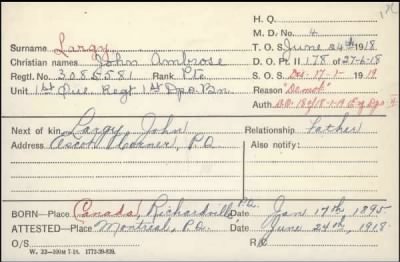 H. Q.
M. D. No. 4
Surname Largy
T. O. S. June 24th 1918
Christian names John Ambrose
D. O. Pt. II 178 of 27-6-18
Regtl. No. 3085581 Rank Pte.
S. O. S. Dec. 17-1- 1919
Unit 1st Que. Regt 1st Dpo. Bn.
Reason "Demob"
Auth. D.O. 18 of 18-1-19
Next of kin Largy, John Relationship Father
Address Ascot Corner, P.Q. Also notify:
BORN—Place Canada, Richardville, P.Q. Date Jan 17th, 1895
ATTESTED—Place Montreal, P.Q. Date June 24th, 1918
O/S R/C